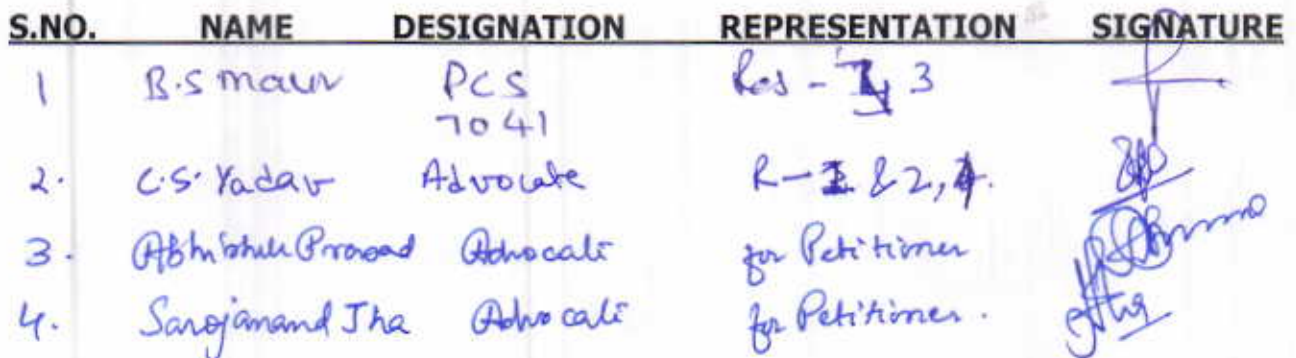 S.NO. NAME DESIGNATION REPRESENTATION SIGNATURE
1 B.S maur PCS Res - 3
7041
2. C.S. Yadav Advocate R- & 2,
3. Prasad Advocate for Petitioner
4. Sarojanand Jha Advocate for Petitioner.